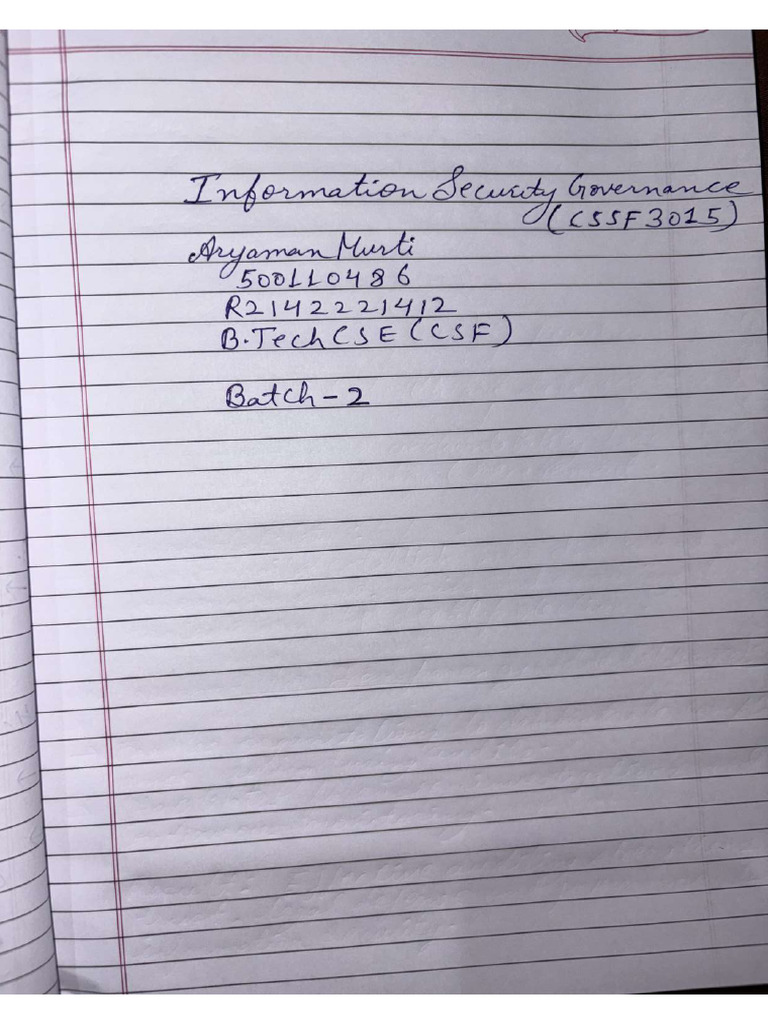 Information Security Governance
(CSSF3015)
Aryaman Murti
500110486
R2142221412
B.Tech CSE (CSF)
Batch - 2